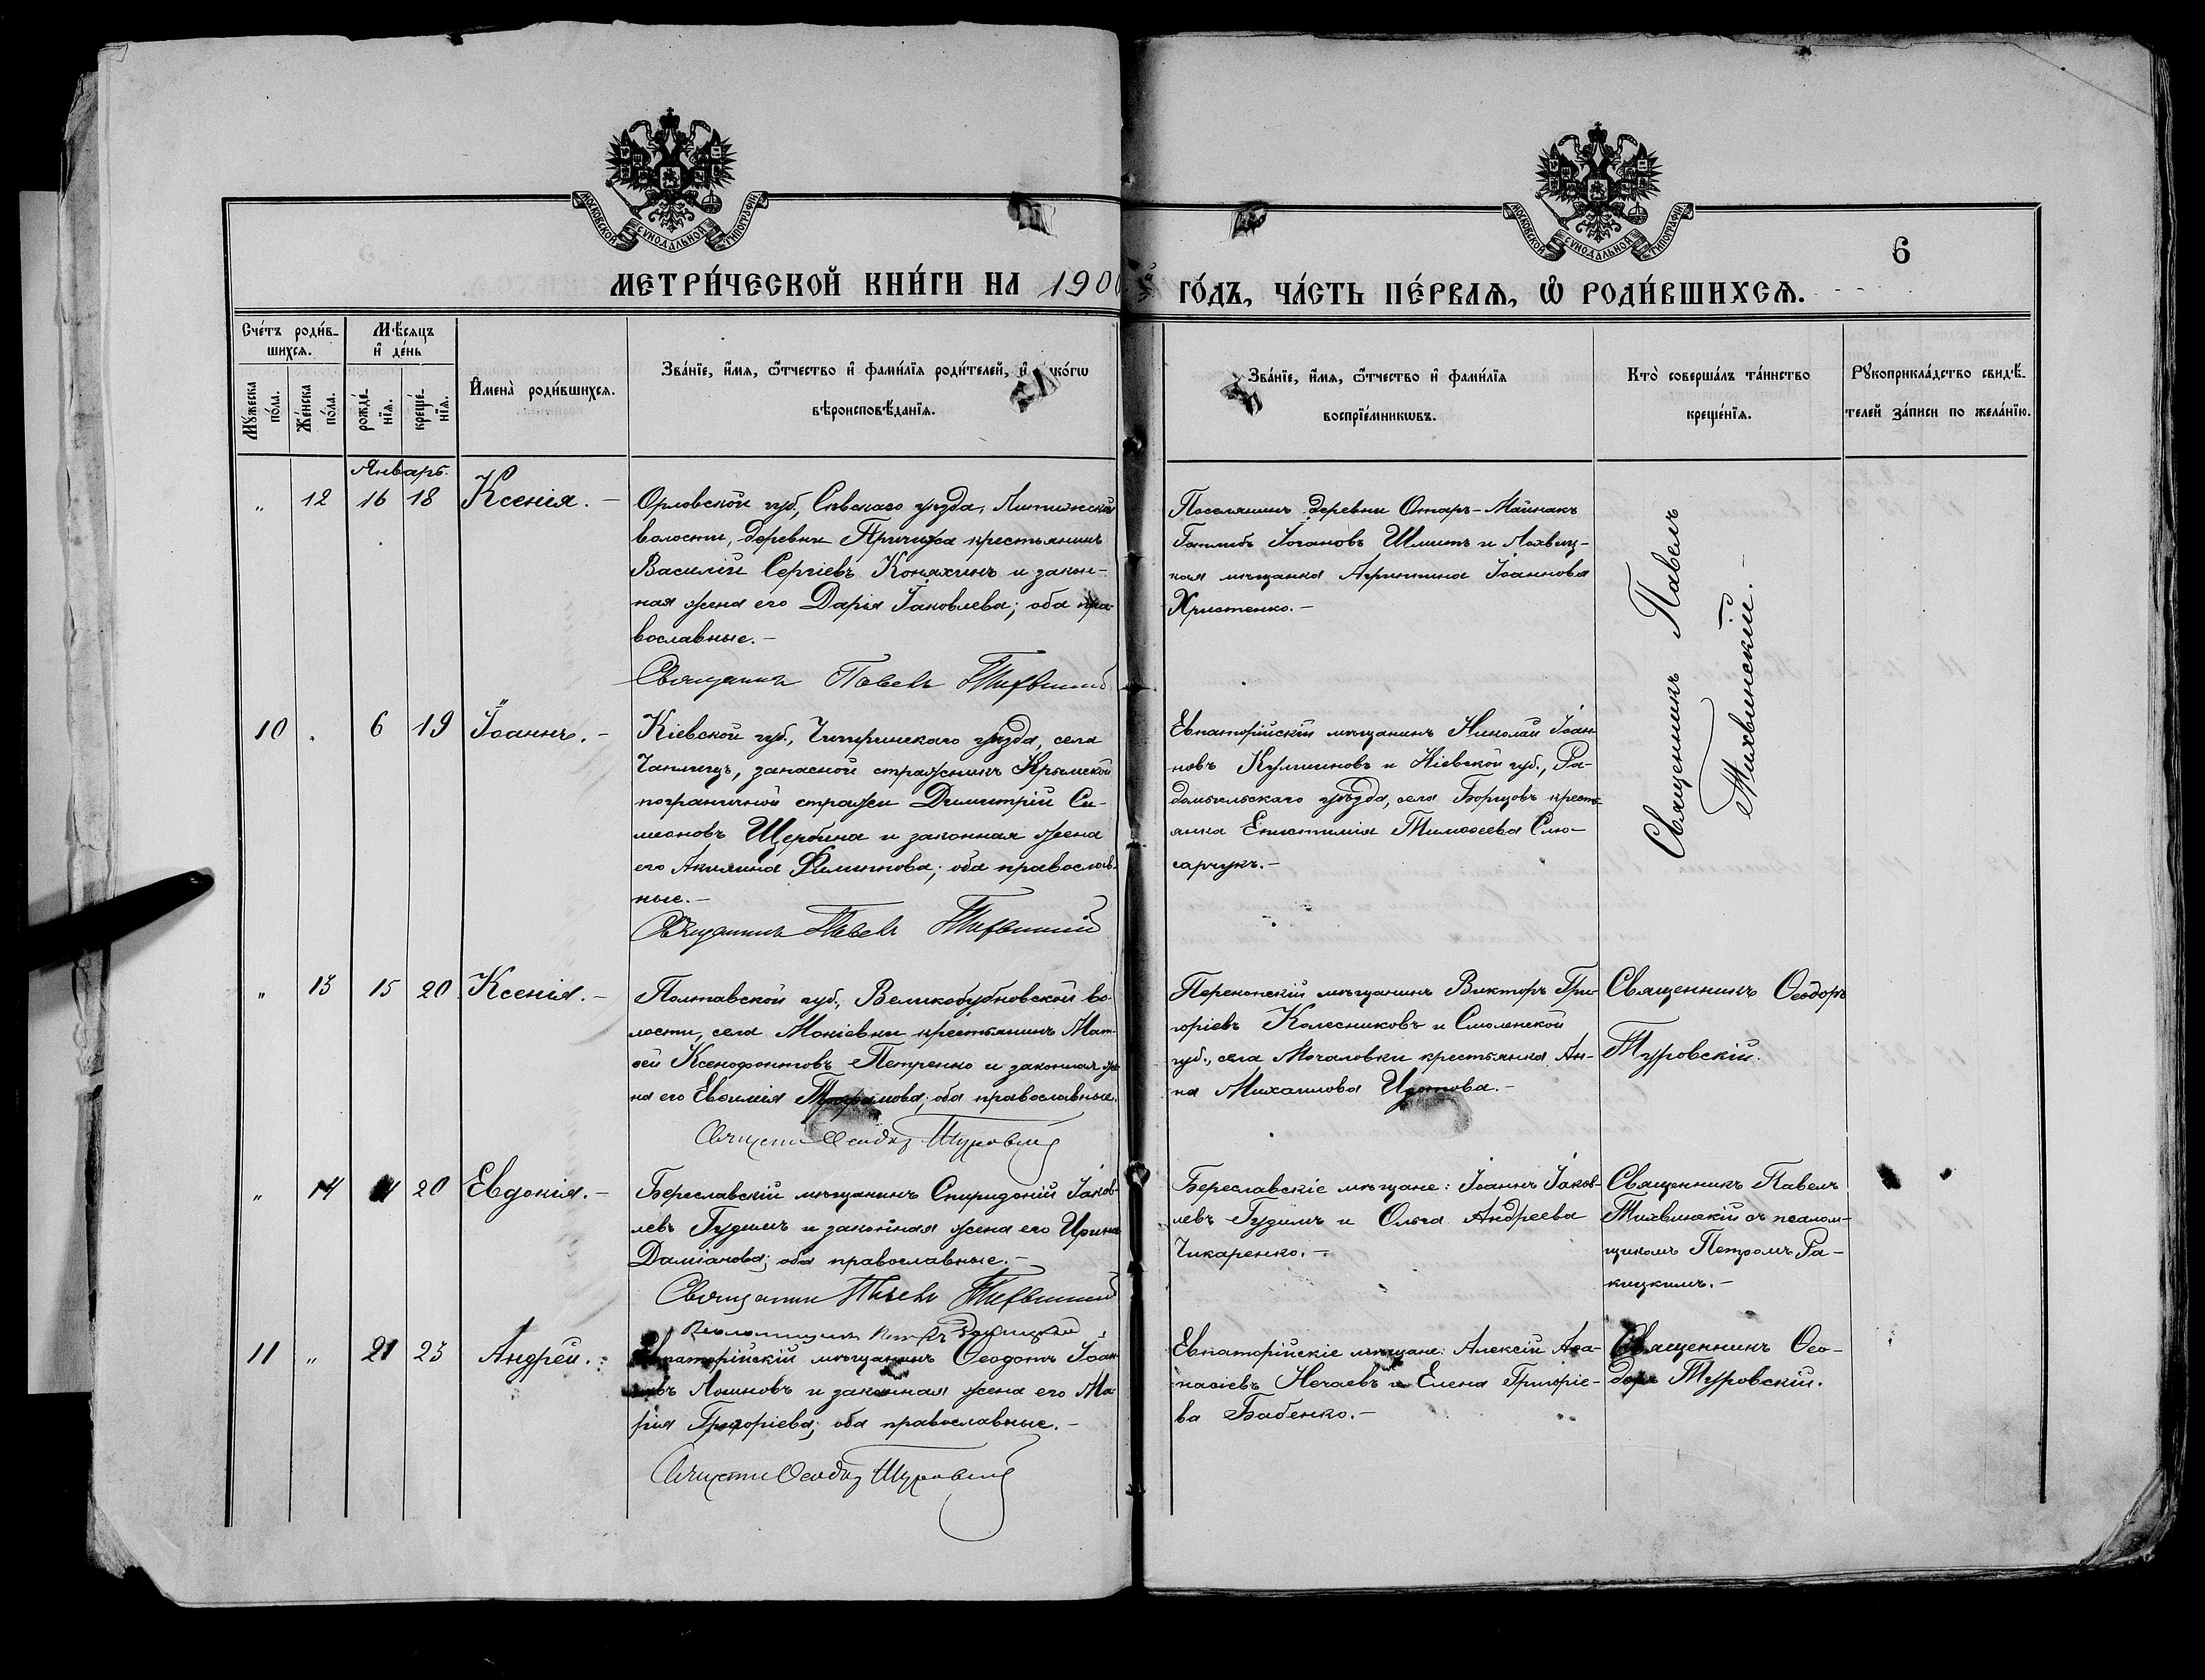 МОСКОВСКОЙ СѴНОДАЛЬНОЙ ТИПОГРАФІИ
МОСКОВСКОЙ СѴНОДАЛЬНОЙ ТИПОГРАФІИ
6
МЕТРИ́ЧЕСКОЙ КНИ́ГИ НА 190
ГО́ДЪ, ЧА́СТЬ ПЕ́РВАѦ, Ѡ РОДИ́ВШИХСѦ.
Сче́тъ роди́в-
шихсѧ.
Мꙋжеска по́ла.
Же́нска по́ла.
Мѣ́сѧцъ
и҆ де́нь
рожде́-нїѧ.
креще́-нїѧ.
И҆мена̀ роди́вшихсѧ.
Зва́нїе, и҆́мѧ, ѻ҆́тчество и҆ фамилїѧ роди́телей, и҆ ко́гѡ
вѣроисповѣ́данїѧ.
Зва́нїе, и҆́мѧ, ѻ҆́тчество и҆ фами́лїѧ
воспрїе́мникѡвъ.
Кто̀ соверша́лъ та́инство
креще́нїѧ.
Рꙋкоприкла́дство свидѣ́-
телей за́писи по жела́нїю.
Январь.
" 12 16 18 Ксенія. –
Орловской губ., Сѣвскаго уѣзда,
волости, деревни крестьянинъ
Василій Сергіевъ Коняхинъ и закон-
ная жена его Дарія Іаковлева; оба пра-
вославные. –
Священникъ Павелъ Тихвинскій
Поселянинъ деревни Отаръ-Майнакъ
Готлибъ Іогановъ Шмитъ и Лохвиц-
кая мѣщанка Агрипина Іоаннова
Христенко. –
Священникъ Павелъ
Тихвинскій. –
10 " 6 19 Іоаннъ. –
Кіевской губ., Чигиринскаго уѣзда, села
запасной стражникъ Крымской
пограничной стражи Димитрій Си-
меоновъ Щербина и законная жена
его Акилина Филиппова; оба православ-
ные. –
Священникъ Павелъ Тихвинскій
Евпаторійскій мѣщанинъ Николай Іоан-
новъ и Кіевской губ., Ра-
домысльскаго уѣзда, села Борщовъ кресть-
янка Епистимія Тимоѳеева Слю-
сарчукъ. –
" 13 15 20 Ксенія. –
Полтавской губ., Великобубновской во-
лости, села Мокіевки крестьянинъ Мат-
ѳей Ксенофонтовъ Петренко и законная же-
на его Евѳимія оба православные.
Священн. Ѳеодоръ Туровскій
Перекопскій мѣщанинъ Викторъ Гри-
горіевъ Колесниковъ и Смоленской
губ., села Мочаловки крестьянка Ан-
на Михаилова Изотова. –
Священникъ Ѳеодоръ
Туровскій.
" 14 20 Евдокія. –
Бериславскій мѣщанинъ Спиридоній Іаков-
левъ Гудимъ и законная жена его Ирина
Даміанова; оба православные. –
Священникъ Павелъ Тихвинскій
Псаломщикъ Петръ Ракицкій
Бериславскіе мѣщане: Іоаннъ Іаков-
левъ Гудимъ и Ольга Андреева
Чикаренко. –
Священникъ Павелъ
Тихвинскій съ псалом-
щикомъ Петромъ Ра-
кицкимъ. –
11 " 21 23 Андрей.
Евпаторійскій мѣщанинъ Ѳеодотъ Іоан-
новъ Логиновъ и законная жена его Ма-
рія Григоріева; оба православные. –
Священн. Ѳеодоръ Туровскій
Евпаторійскіе мѣщане: Алексій Аѳа-
насіевъ Нечаевъ и Елена Григоріе-
ва Бабенко. –
Священникъ Ѳео-
доръ Туровскій.